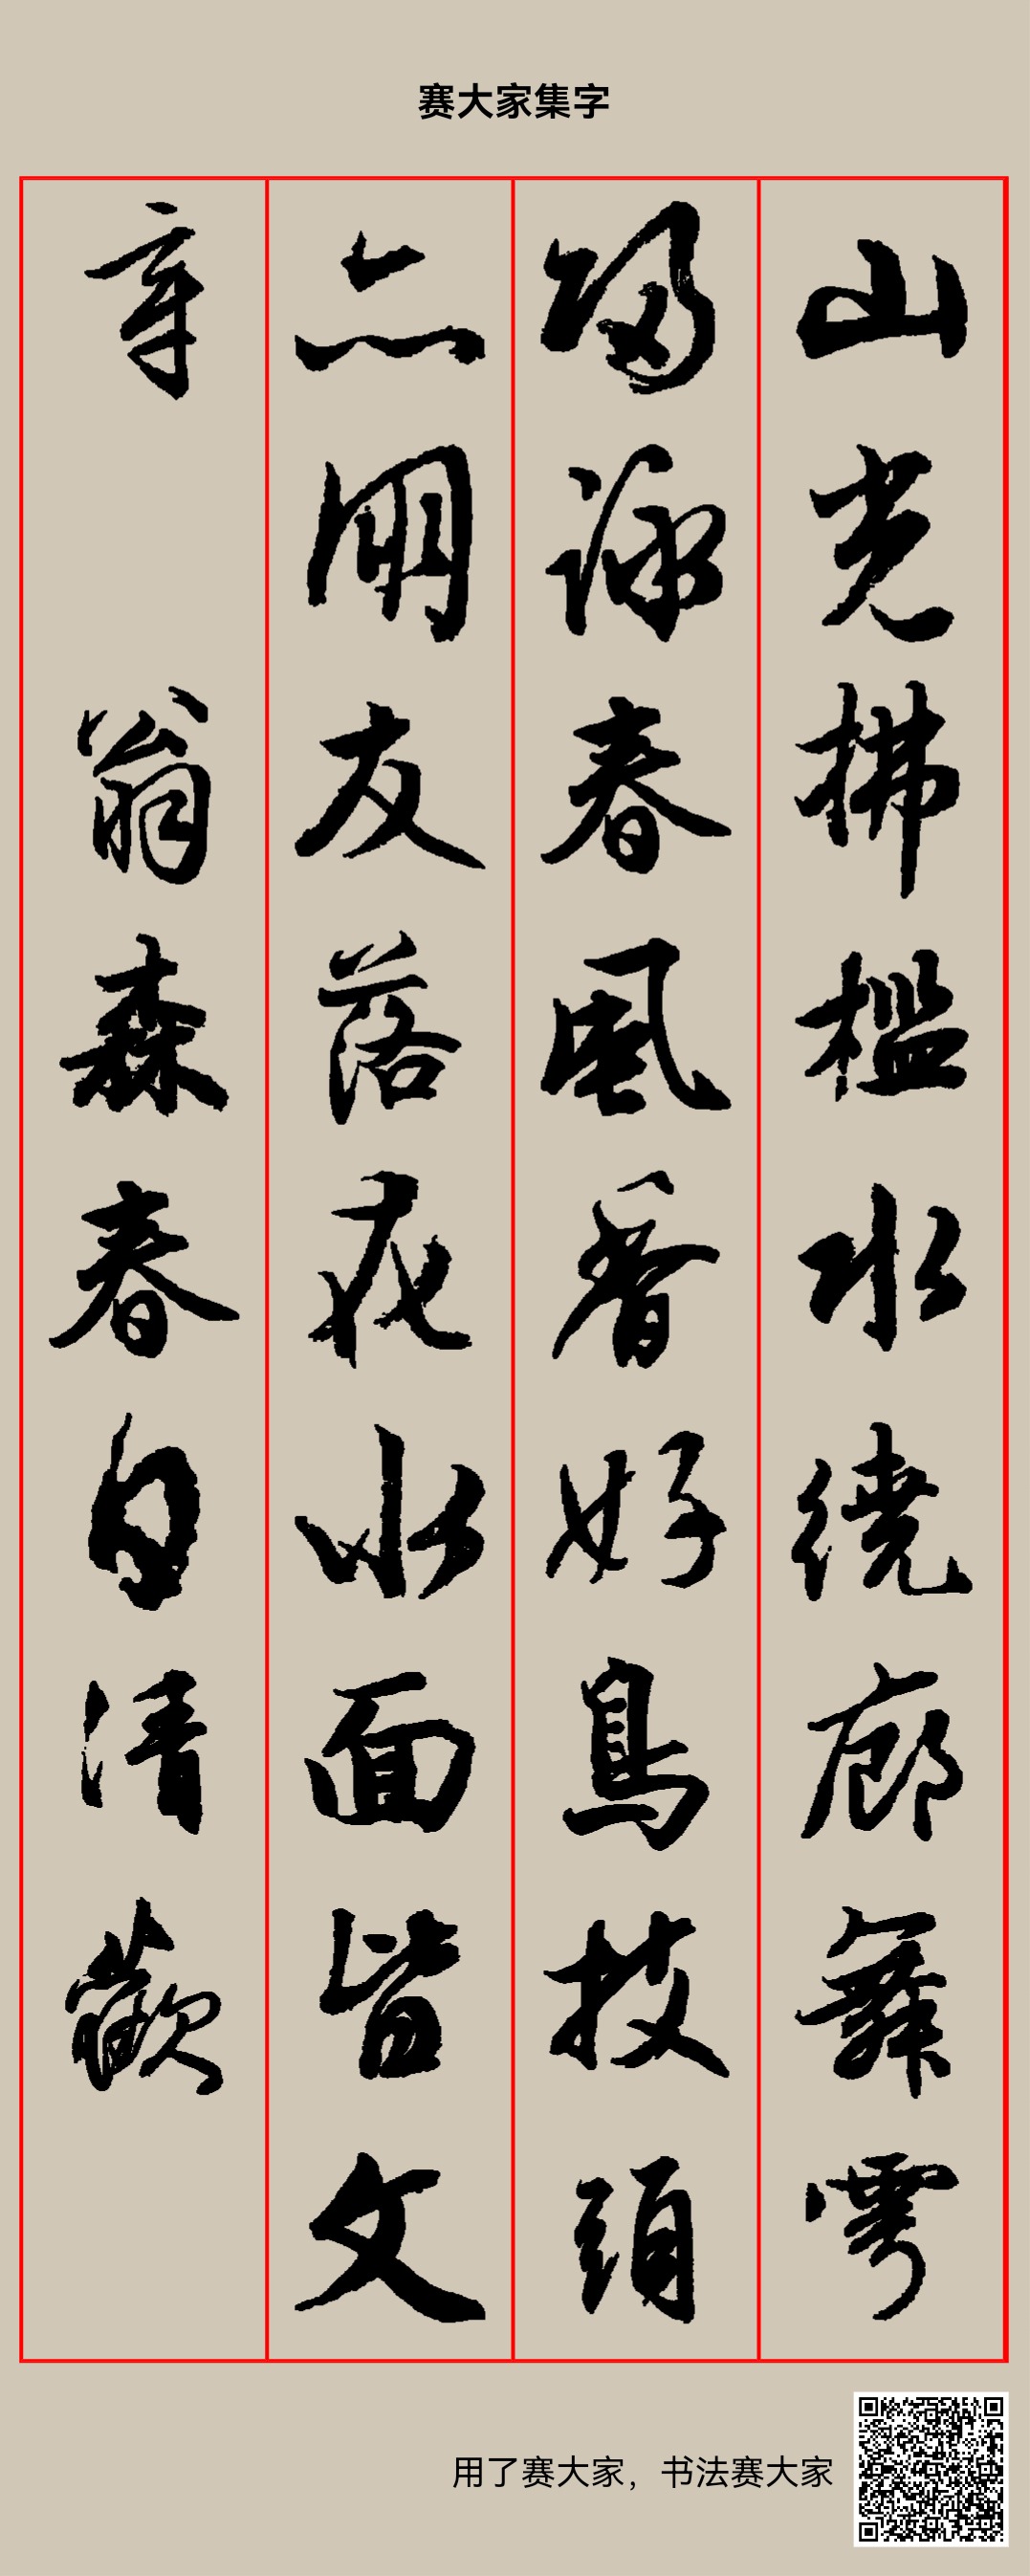 赛大家集字
山光拂檻水繞廊舞雩
歸詠春風香好鳥技頭
亦朋友落花水面皆文
章 翁森春白清歡
用了赛大家，书法赛大家